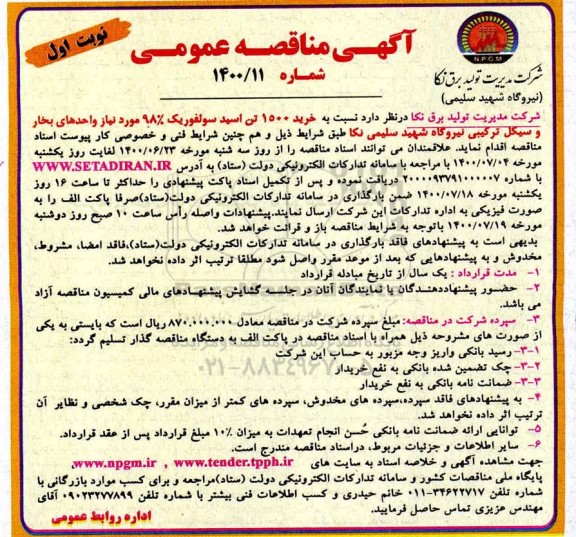 نوبت اول
آگهـی مناقصه عمومی
شماره ۱۴۰۰/۱۱
N.P.G.M
شرکت مدیریت تولید برق نکا
(نیروگاه شهید سلیمی)
شرکت مدیریت تولید برق نکا درنظر دارد نسبت به خرید ۱۵۰۰ تن اسید سولفوریک ۹۸٪ مورد نیاز واحدهای بخار
و سیکل ترکیبی نیروگاه شهید سلیمی نکا طبق شرایط ذیل و هم چنین شرایط فنی و خصوصی کار پیوست اسناد
مناقصه اقدام نماید. علاقمندان می توانند اسناد مناقصه را از روز سه شنبه مورخه ۱۴۰۰/۰۶/۲۳ لغایت روز یکشنبه
مورخه ۱۴۰۰/۰۷/۰۴ با مراجعه با سامانه تدارکات الکترونیکی دولت (ستاد) به آدرس WWW.SETADIRAN.IR
با شماره ۲۰۰۰۰۹۳۷۹۱۰۰۰۰۰۷ دریافت نموده و پس از تکمیل اسناد پاکت پیشنهادی را حداکثر تا ساعت ۱۶ روز
یکشنبه مورخه ۱۴۰۰/۰۷/۱۸ ضمن بارگذاری در سامانه تدارکات الکترونیکی دولت(ستاد)صرفا پاکت الف را به
صورت فیزیکی به اداره تدارکات این شرکت ارسال نمایند.پیشنهادات واصله رأس ساعت ۱۰ صبح روز دوشنبه
مورخه ۱۴۰۰/۰۷/۱۹ باتوجه با شرایط مناقصه باز و قرائت خواهد شد.
بدیهی است به پیشنهادهای فاقد بارگذاری در سامانه تدارکات الکترونیکی دولت(ستاد)،فاقد امضا، مشروط،
مخدوش و به پیشنهادهایی که بعد از موعد مقرر واصل شود مطلقا ترتیب اثر داده نخواهد شد.
۱- مدت قرارداد : یک سال از تاریخ مبادله قرارداد
۲- حضـور پیشنهاددهنـدگان یا نمایندگان آنان در جلسـه گشایش پیشنهـادهای مالی کمیسیون مناقصه آزاد
می باشد.
۳- سپرده شرکت در مناقصه: مبلغ سپرده شرکت در مناقصه معادل ۸۷۰.۰۰۰.۰۰۰ ریال است که بایستی به یکی
از صورت های مشروحه ذیل همراه با اسناد مناقصه در پاکت الف به دستگاه مناقصه گذار تسلیم گردد:
۳-۱- رسید بانکی واریز وجه مزبور به حساب این شرکت
۳-۲- چک تضمین شده بانکی به نفع خریدار
۳-۳- ضمانت نامه بانکی به نفع خریدار
۴- به پیشنهادهای فاقد سپرده،سپرده های مخدوش، سپرده های کمتر از میزان مقرر، چک شخصی و نظایر آن
ترتیب اثر داده نخواهد شد.
۵- توانایی ارائه ضمانت نامه بانکی حُسن انجام تعهدات به میزان ۱۰٪ مبلغ قرارداد پس از عقد قرارداد.
۶- سایر اطلاعات و جزئیات مربوط، دراسناد مناقصه مندرج است.
جهت مشاهده آگهی و خلاصه اسناد به سایت های www.tender.tpph.ir , www.npgm.ir,
پایگاه ملی مناقصات کشور و سامانه تدارکات الکترونیکی دولت (ستاد)مراجعه و برای کسب موارد بازرگانی با
شماره تلفن ۳۴۶۲۲۷۱۷-۰۱۱ خانم حیدری و کسب اطلاعات فنی بیشتر با شماره تلفن ۰۹۰۲۳۲۷۷۸۹۹ آقای
مهندس عزیزی تماس حاصل فرمایید.
اداره روابط عمومی